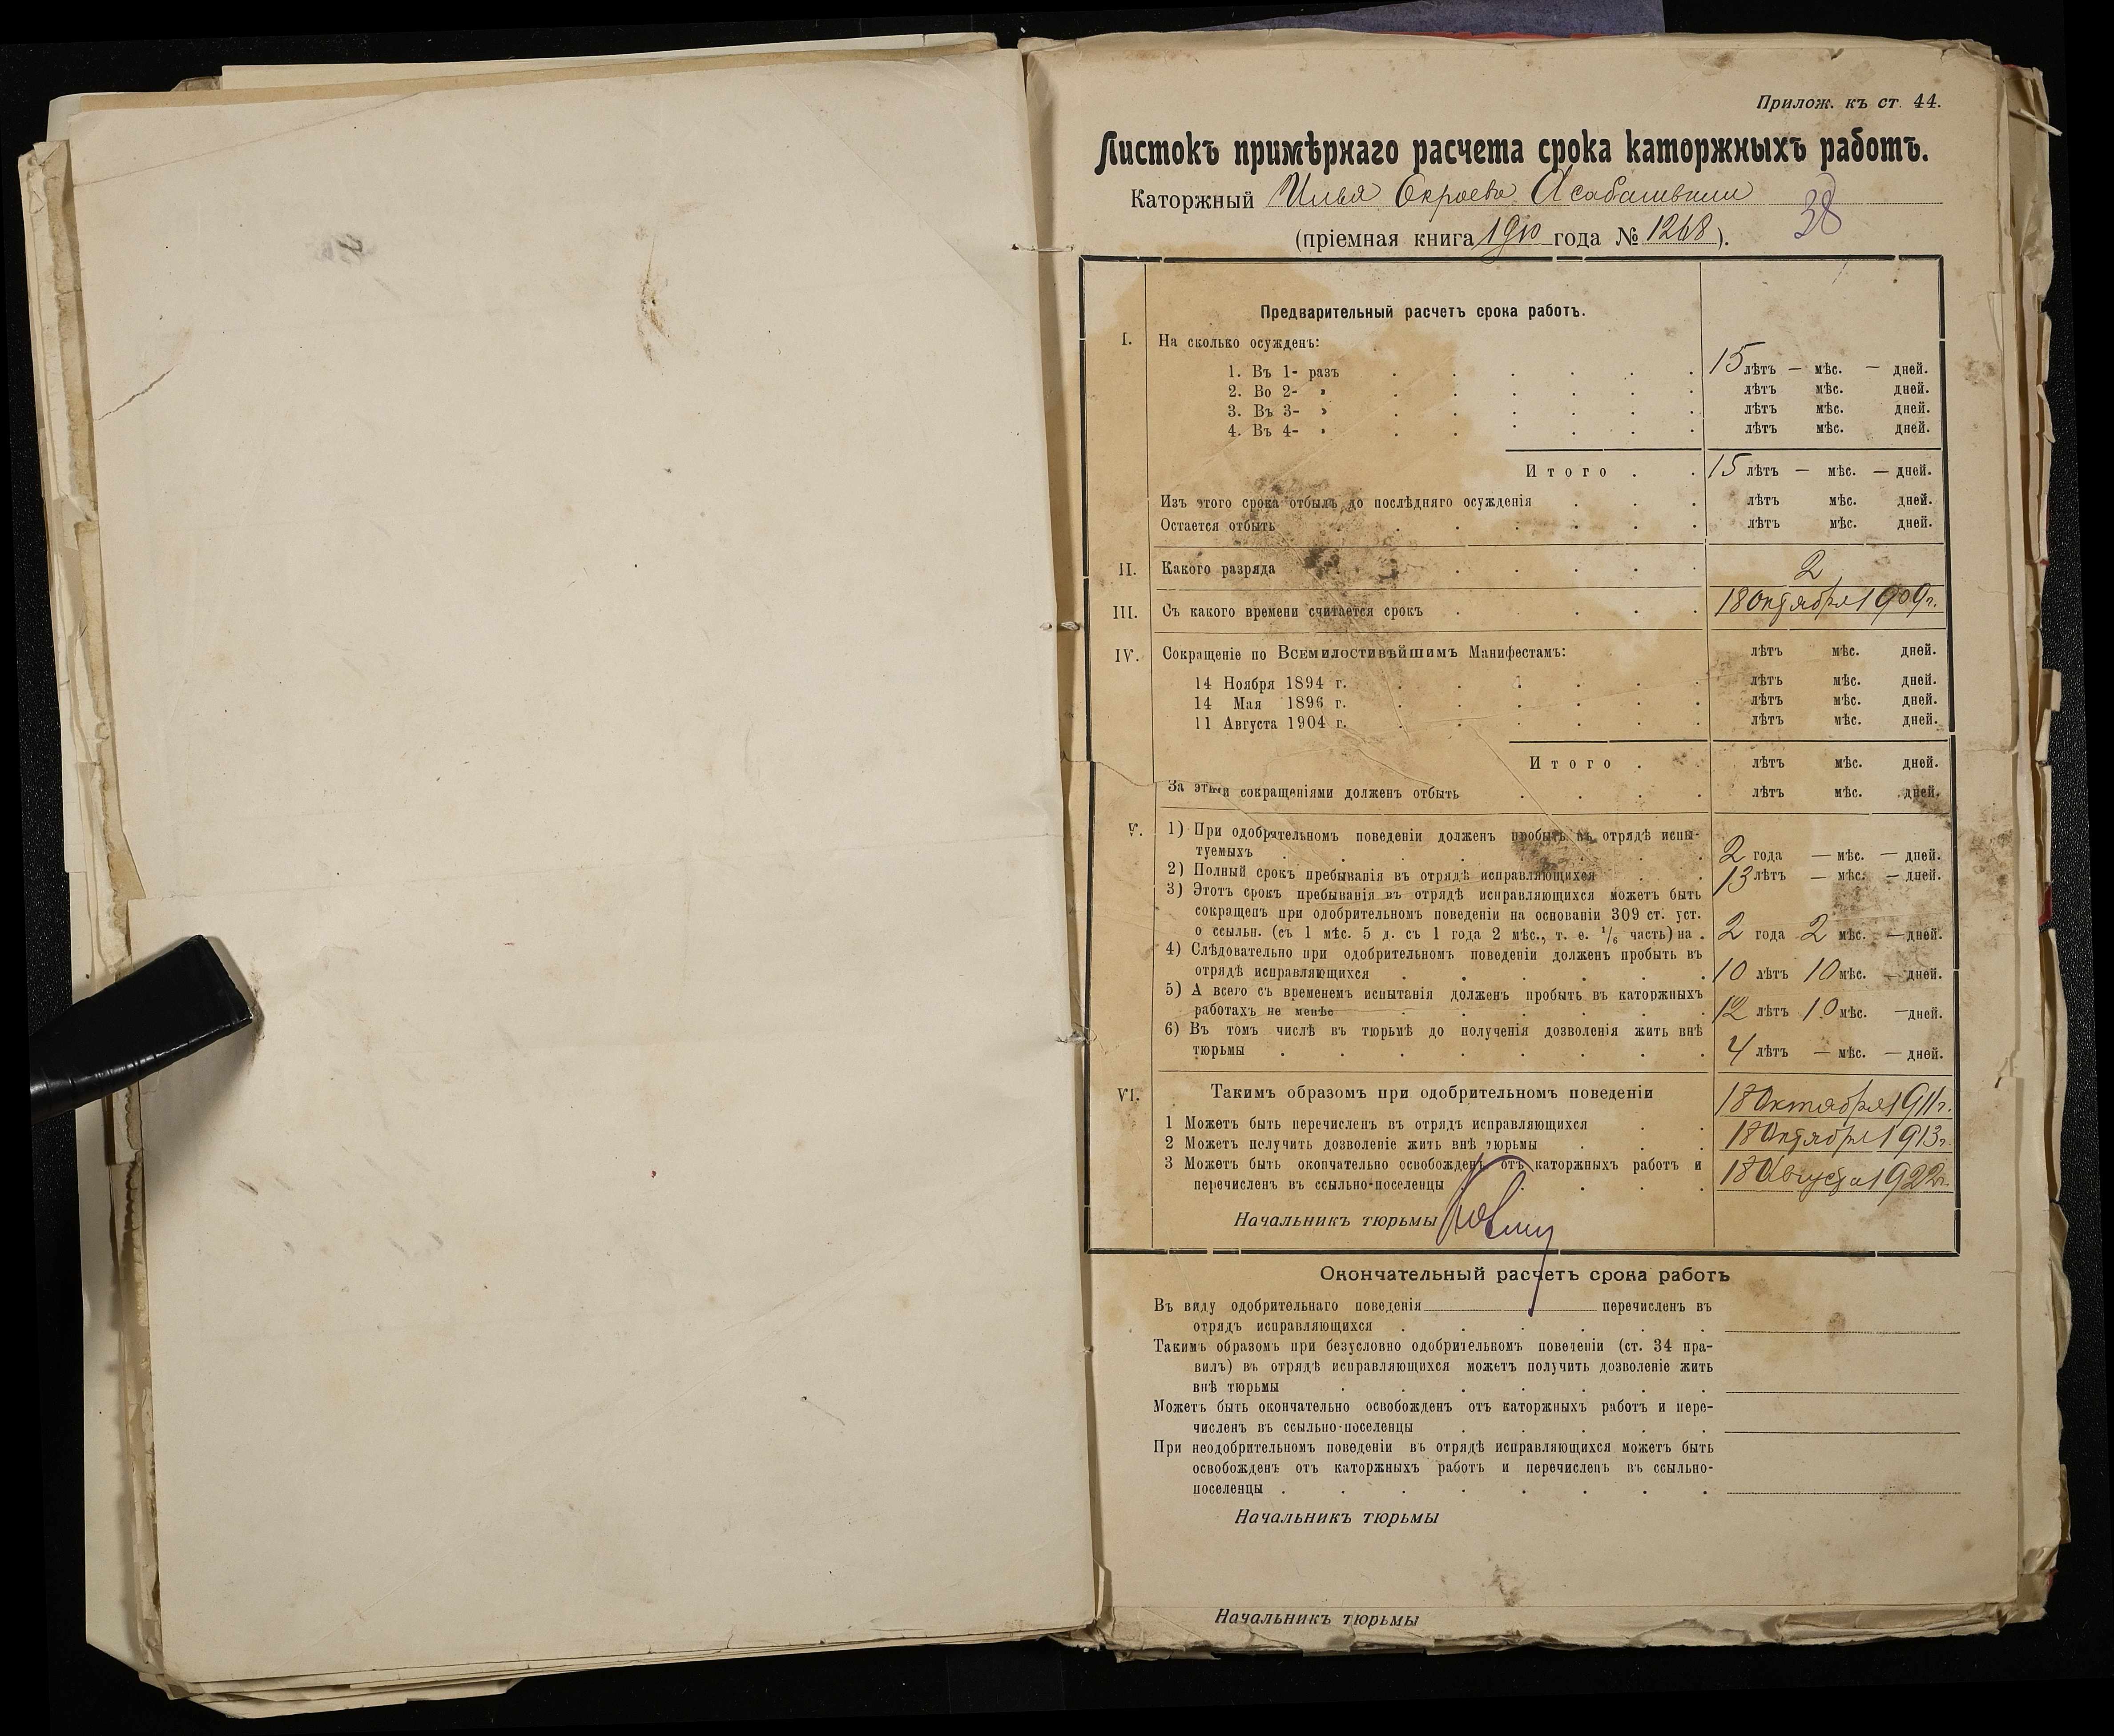 Прилож. къ ст. 44.
Листокъ примѣрнаго расчета срока каторжныхъ работъ.
Каторжный Илья Окроевъ Асабашвили
38
(пріемная книга 1910 года № 1268).
Предварительный расчетъ срока работъ.
I. На сколько осужденъ:
1. Въ 1- разъ 15 лѣтъ — мѣс. — дней.
2. Во 2- » лѣтъ мѣс. дней.
3. Въ 3- » лѣтъ мѣс. дней.
4. Въ 4- » лѣтъ мѣс. дней.
Итого 15 лѣтъ — мѣс. — дней.
Изъ этого срока отбылъ до послѣдняго осужденія лѣтъ мѣс. дней.
Остается отбыть лѣтъ мѣс. дней.
II. Какого разряда 2
III. Съ какого времени считается срокъ 18 Октября 1909 г.
IV. Сокращеніе по Всемилостивѣйшимъ Манифестамъ: лѣтъ мѣс. дней.
14 Ноября 1894 г. лѣтъ мѣс. дней.
14 Мая 1896 г. лѣтъ мѣс. дней.
11 Августа 1904 г. лѣтъ мѣс. дней.
Итого лѣтъ мѣс. дней.
За этими сокращеніями долженъ отбыть лѣтъ мѣс. дней.
V. 1) При одобрительномъ поведеніи долженъ пробыть въ отрядѣ испы-
туемыхъ 2 года — мѣс. — дней.
2) Полный срокъ пребыванія въ отрядѣ исправляющихся 13 лѣтъ — мѣс. — дней.
3) Этотъ срокъ пребыванія въ отрядѣ исправляющихся можетъ быть
сокращенъ при одобрительномъ поведеніи на основаніи 309 ст. уст.
о ссыльн. (съ 1 мѣс. 5 д. съ 1 года 2 мѣс., т. е. 1/6 часть) на 2 года 2 мѣс. — дней.
4) Слѣдовательно при одобрительномъ поведеніи долженъ пробыть въ
отрядѣ исправляющихся 10 лѣтъ 10 мѣс. — дней.
5) А всего съ временемъ испытанія долженъ пробыть въ каторжныхъ
работахъ не менѣе 12 лѣтъ 10 мѣс. — дней.
6) Въ томъ числѣ въ тюрьмѣ до полученія дозволенія жить внѣ
тюрьмы 4 лѣтъ — мѣс. — дней.
VI. Такимъ образомъ при одобрительномъ поведеніи
1 Можетъ быть перечисленъ въ отрядъ исправляющихся 18 Октября 1911 г.
2 Можетъ получить дозволеніе жить внѣ тюрьмы 18 Октября 1913 г.
3 Можетъ быть окончательно освобожденъ отъ каторжныхъ работъ и
перечисленъ въ ссыльно-поселенцы 18 Августа 1922 г.
Начальникъ тюрьмы
Окончательный расчетъ срока работъ
Въ виду одобрительнаго поведенія перечисленъ въ
отрядъ исправляющихся
Такимъ образомъ при безусловно одобрительномъ поведеніи (ст. 34 пра-
вилъ) въ отрядѣ исправляющихся можетъ получить дозволеніе жить
внѣ тюрьмы
Можетъ быть окончательно освобожденъ отъ каторжныхъ работъ и пере-
численъ въ ссыльно-поселенцы
При неодобрительномъ поведеніи въ отрядѣ исправляющихся можетъ быть
освобожденъ отъ каторжныхъ работъ и перечисленъ въ ссыльно-
поселенцы
Начальникъ тюрьмы
Начальникъ тюрьмы